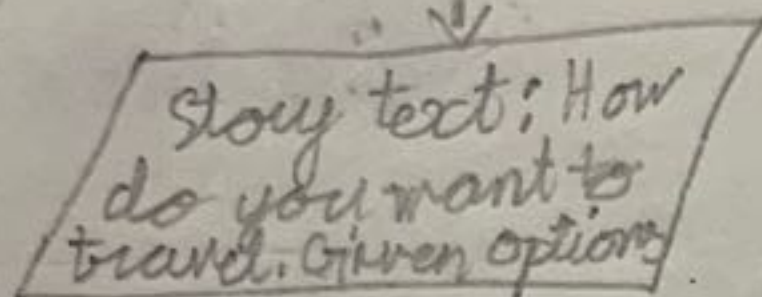 Story text: How
do you want to
travel. Given options